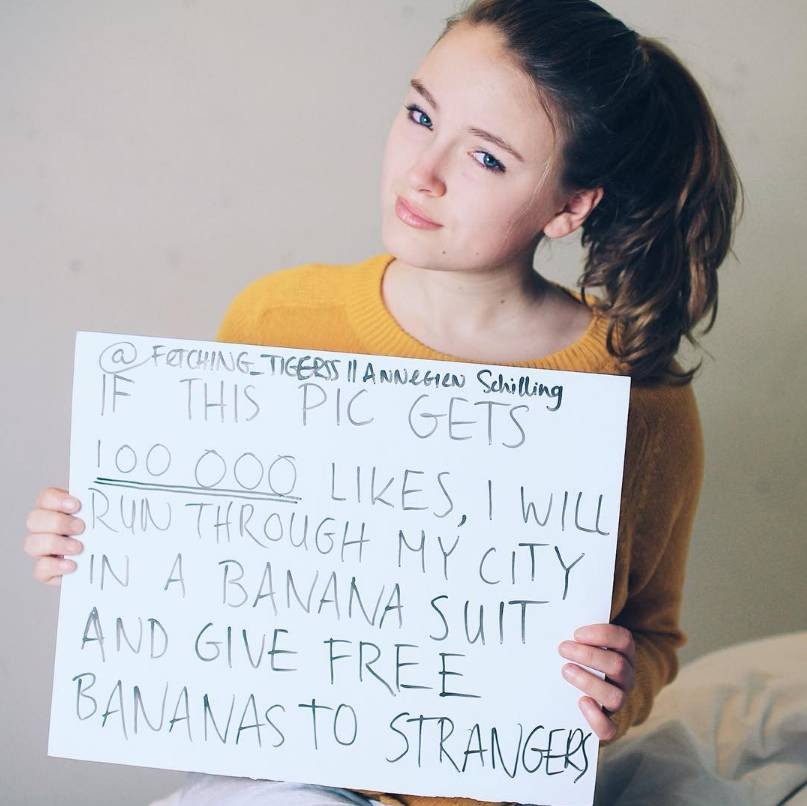 @ FETCHING_TIGERSS || ANNEGIEN Schilling
IF THIS PIC GETS
100 000 LIKES, I WILL
RUN THROUGH MY CITY
IN A BANANA SUIT
AND GIVE FREE
BANANAS TO STRANGERS